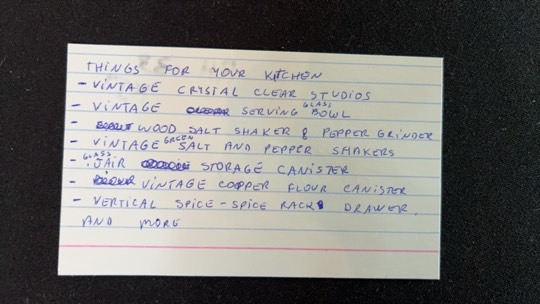 THINGS FOR YOUR KITCHEN
- VINTAGE CRYSTAL CLEAR STUDIOS
- VINTAGE SERVING GLASS BOWL
- WOOD SALT SHAKER & PEPPER GRINDER
- VINTAGE GREEN SALT AND PEPPER SHAKERS
- GLASS JAIR STORAGE CANISTER
- VINTAGE COPPER FLOUR CANISTER
- VERTICAL SPICE - SPICE RACK DRAWER
AND MORE